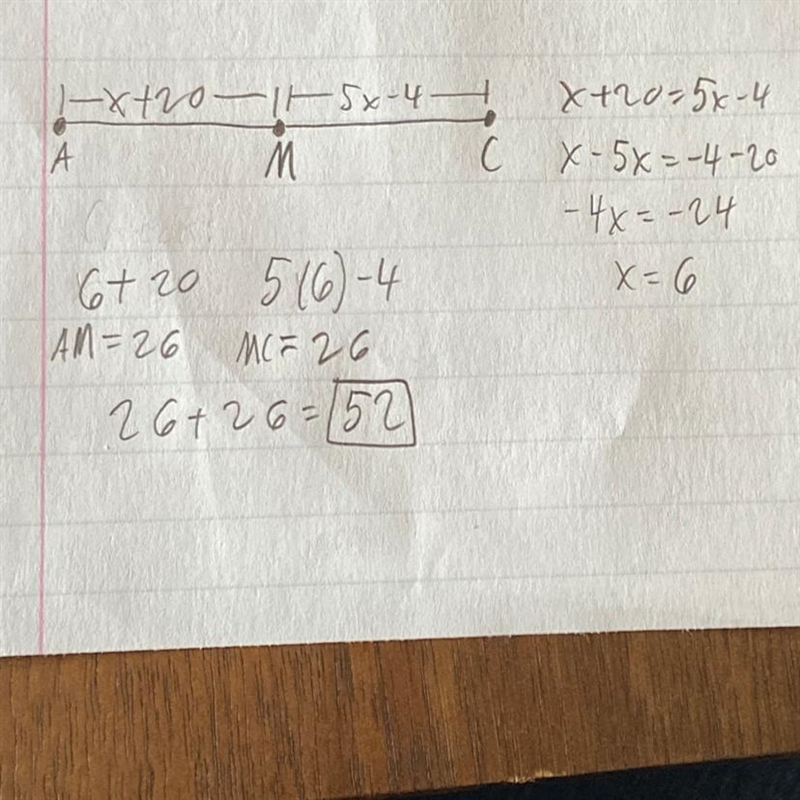 x+20 5x-4
A M C
x+20=5x-4
x-5x=-4-20
-4x=-24
x=6
6+20 5(6)-4
AM=26 MC=26
26+26=52